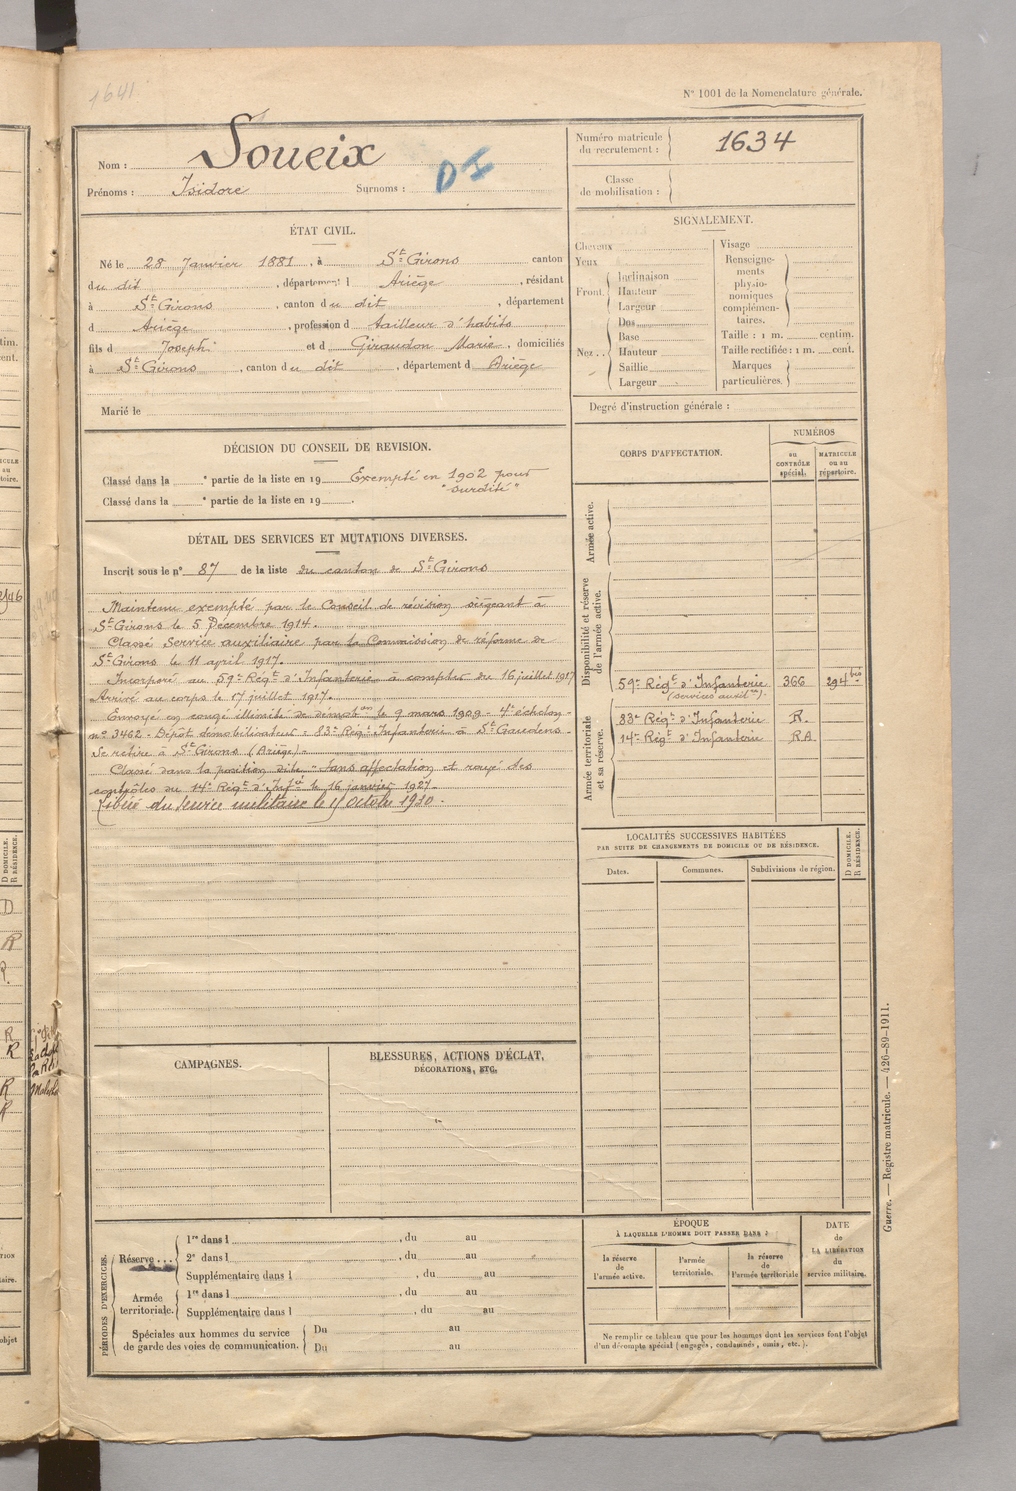 1641
N° 1001 de la Nomenclature générale.
Nom : Soueix
Prénoms : Isidore Surnoms : DI
Numéro matricule du recrutement : 1634
Classe de mobilisation :
ÉTAT CIVIL.
Né le 28 Janvier 1881, à St Girons canton
du dit, département l Ariège, résidant
à St Girons, canton du dit, département
d Ariège, profession d tailleur d'habits
fils d Joseph et d Giraudon Marie, domiciliés
à St Girons, canton du dit, département d Ariège
Marié le
SIGNALEMENT.
Cheveux
Yeux
Front. Inclinaison
Hauteur
Largeur
Nez.. Dos
Base
Hauteur
Saillie
Largeur
Visage
Renseigne-
ments
physio-
nomiques
complémen-
taires.
Taille : 1 m. centim.
Taille rectifiée : 1 m. cent.
Marques
particulières.
Degré d'instruction générale :
DÉCISION DU CONSEIL DE REVISION.
Classé dans la e partie de la liste en 19 Exempté en 1902 pour
"surdité"
Classé dans la e partie de la liste en 19 .
DÉTAIL DES SERVICES ET MUTATIONS DIVERSES.
Inscrit sous le n° 87 de la liste du canton de St Girons
Maintenu exempté par le Conseil de révision siégeant à
St Girons le 5 Décembre 1914.
Classé Service auxiliaire par la Commission de réforme de
St Girons le 11 avril 1917.
Incorporé au 59e Régt d'Infanterie à compter du 16 juillet 1917
Arrivé au corps le 17 juillet 1917.
Envoyé en congé illimité de démobon le 9 mars 1909 - 4e échelon -
n° 3462 - Dépôt démobilisateur : 83e Régt Infanterie à St Gaudens.
Se retire à St Girons (Ariège).
Classé dans la position dite "Sans affectation et rayé des
contrôles du 14e Régt d'Infie le 16 janvier 1927.
Libéré du service militaire le Octobre 1930.
CORPS D'AFFECTATION.
NUMÉROS
au CONTRÔLE spécial.
MATRICULE ou au répertoire.
Armée active.
Disponibilité et réserve de l'armée active.
59e Régt d'Infanterie 366 294 bis
(services auxilres).
Armée territoriale et sa réserve.
83e Régt d'Infanterie R.
14e Régt d'Infanterie RA
LOCALITÉS SUCCESSIVES HABITÉES
PAR SUITE DE CHANGEMENTS DE DOMICILE OU DE RÉSIDENCE.
D DOMICILE.
R RÉSIDENCE.
Dates. Communes. Subdivisions de région.
CAMPAGNES.
BLESSURES, ACTIONS D'ÉCLAT,
DÉCORATIONS, ETC.
PÉRIODES D'EXERCICES.
Réserve... 1re dans l , du au
2e dans l , du au
Supplémentaire dans l , du au
Armée territoriale. 1re dans l , du au
Supplémentaire dans l , du au
Spéciales aux hommes du service
de garde des voies de communication. Du au
Du au
ÉPOQUE
À LAQUELLE L'HOMME DOIT PASSER DANS :
la réserve de l'armée active.
l'armée territoriale.
la réserve de l'armée territoriale
DATE
de
LA LIBÉRATION
du
service militaire.
Ne remplir ce tableau que pour les hommes dont les services font l'objet
d'un décompte spécial (engagés, condamnés, omis, etc.).
Guerre. — Registre matricule. — 426-89-1911.